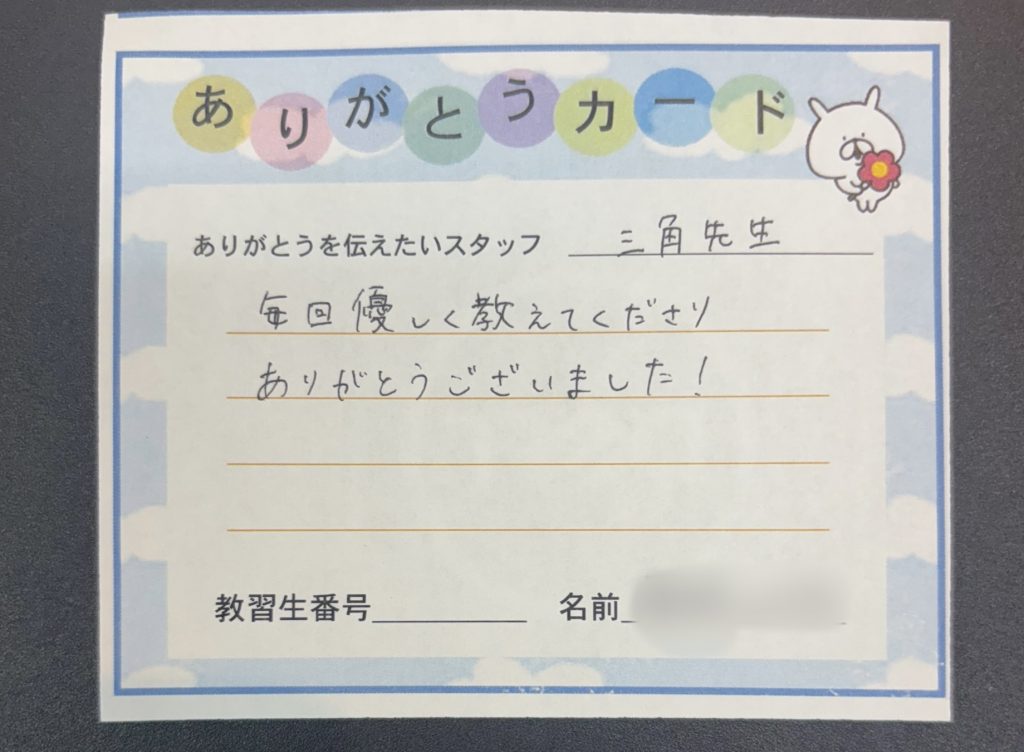 ありがとうカード
ありがとうを伝えたいスタッフ 三角先生
毎回優しく教えてくださり
ありがとうございました！
教習生番号 名前